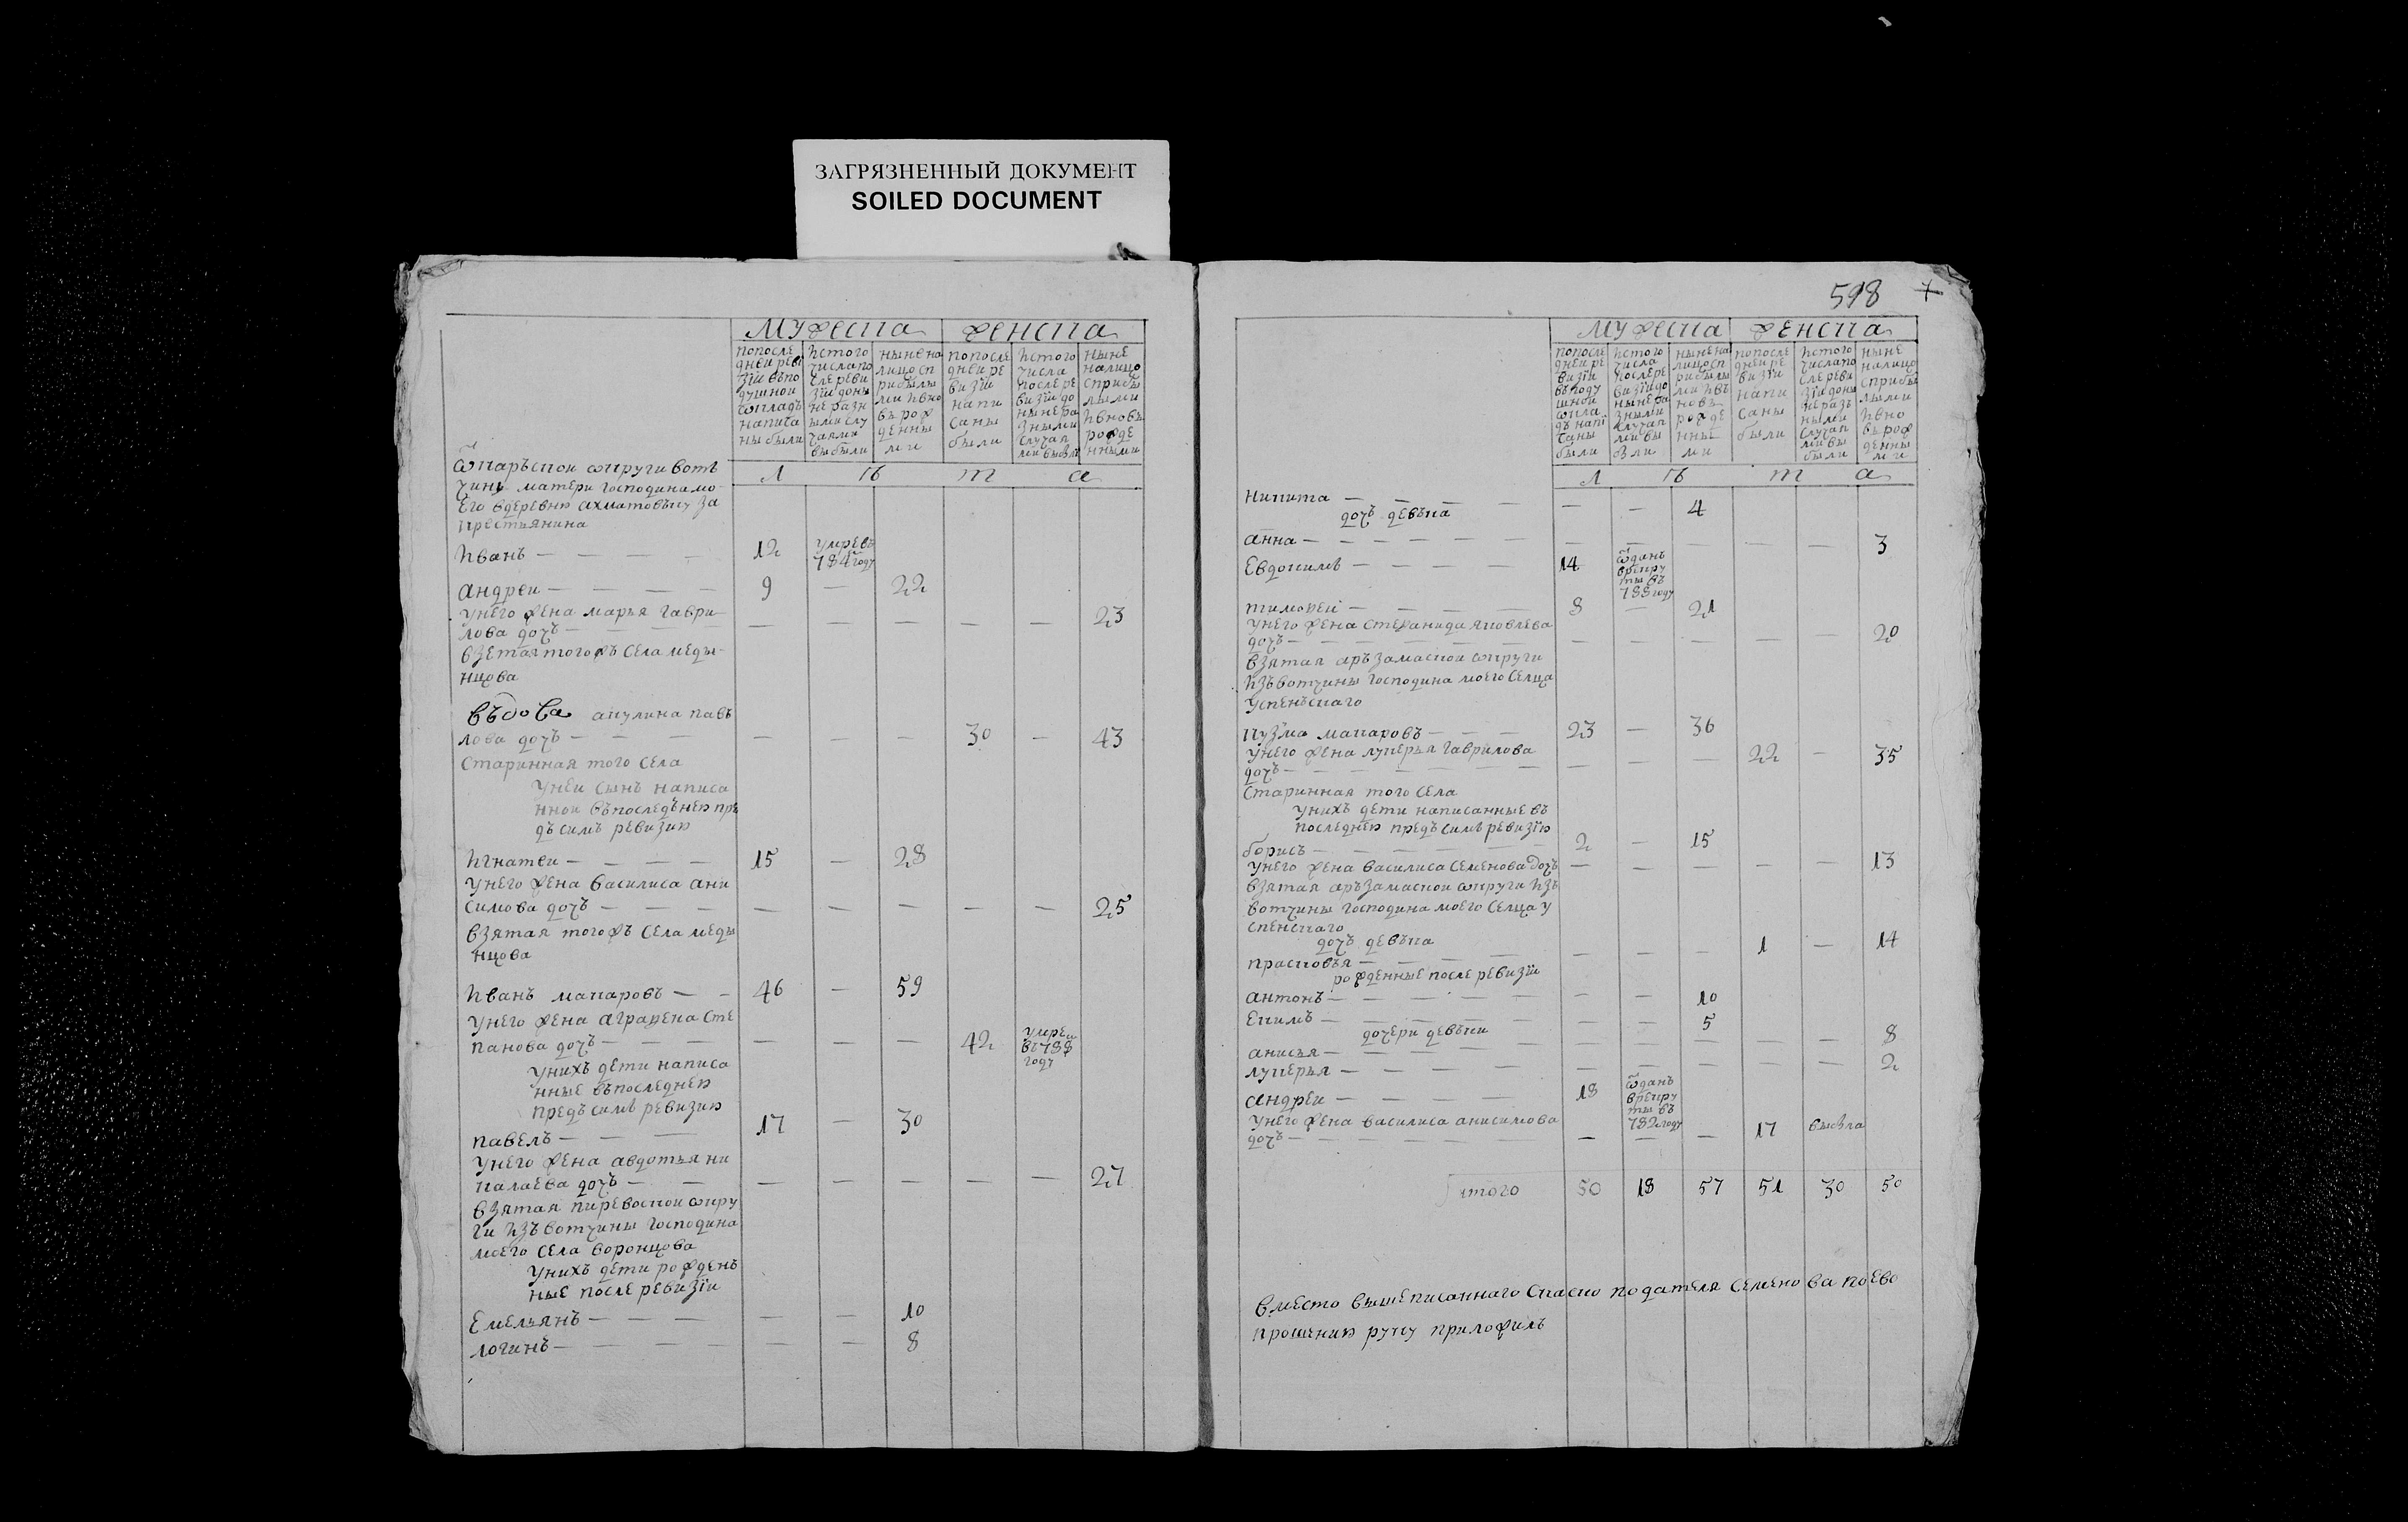 ЗАГРЯЗНЕННЫЙ ДОКУМЕНТ
SOILED DOCUMENT
мужеска женска
попосле дней реви зїи въпо душной окладъ написа ны были
истого числа по сле реви зїи доны не разн ыми слу чаями выбыли
ныне на лицо сп рибылы ми ивно въ рож денны ми
попосле дней ре визїи напи саны были
истого числа после ре визїи до ныне ра зными случая ми выбыли
ныне налицо сприбы лыми ивновь рожде нными
л ѣ т а
карьской округи вотъ
чины матери господина мо
его вдеревню ахматовъку за
крестьянина
иванъ — 12 умре въ 784 году
андреи — 9 — 22
унего жена марья гаври
лова дочь — — — — — — 23
взетая тогожъ села меды
нцова
въдова акулина павъ
лова дочь — — — — 30 — 43
старинная того села
унеи сынъ написа
нной въпоследънею пре
дъ симъ ревизию
игнатеи — 15 — 28
унего жена василиса ани
симова дочь — — — — — — 25
взятая тогожъ села меды
нцова
иванъ макаровъ — 46 — 59
унего жена аграфена сте
панова дочь — — — — 42 умре въ 788 году
унихъ дети написа
нные въпоследнею
предъ симъ ревизию
павелъ — 17 — 30
унего жена авдотья ни
калаева дочь — — — — — — 27
взятая киревоской окру
ги изъ вотчины господина
моего села воронцова
унихъ дети рожденъ
ные после ревизїи
емельянъ — — — 10
логинъ — — — 8
598
мужеска женска
попосле дней ре визїи въ поду шной окла дъ напи саны были
истого числа после ре визїи до ныне ра зными случая ми вы были
ныне на лицо сп рибылы ми ивъ новь рожде нны ми
попосле дней ре визїи напи саны были
истого числа по сле реви зїи доны не разъ ными случая ми вы были
ныне налицо сприбы лыми ивно въ рож денны ми
л ѣ т а
никита — — — 4
дочь девъка
анна — — — — — — 3
евдокимъ — 14 ѿданъ врекру ты въ 788 году
тимофей — 8 — 21
унего жена стефанида яковлева
дочь — — — — — — 20
взятая аръзамаской округи
изъ вотчины господина моего селца
успенъскаго
кузма макаровъ — 23 — 36
унего жена лукерья гаврилова
дочь — — — — 22 — 35
старинная того села
унихъ дети написанные въ
последнею предъ симъ ревизїю
борисъ — 2 — 15
унего жена василиса семенова дочь — — — — — 13
взятая аръзамаской округи изъ
вотчины господина моего селца у
спенскаго
дочь девъка
прасковья — — — — 1 — 14
рожденные после ревизїи
антонъ — — — 10
екимъ — — — 5
дочери девъки
анисья — — — — — — 8
лукерья — — — — — — 2
андреи — 18 ѿданъ врекру ты въ 782 году
унего жена василиса анисимова
дочь — — — — 17 выбыла
итого 50 18 57 51 30 50
вместо вышеписаннаго подателя семенова поево
прошению руку приложилъ